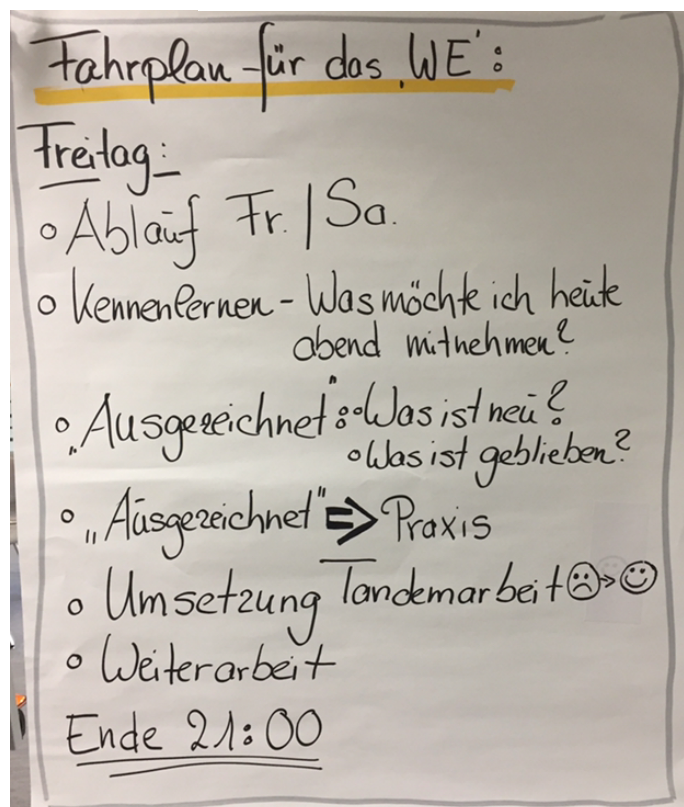 Fahrplan für das ‚WE':
Freitag:
o Ablauf Fr. | Sa.
o Kennenlernen - Was möchte ich heute
abend mitnehmen?
o „Ausgezeichnet": o Was ist neu?
o Was ist geblieben?
o „Ausgezeichnet" => Praxis
o Umsetzung Tandemarbeit ☹ > ☺
o Weiterarbeit
Ende 21:00